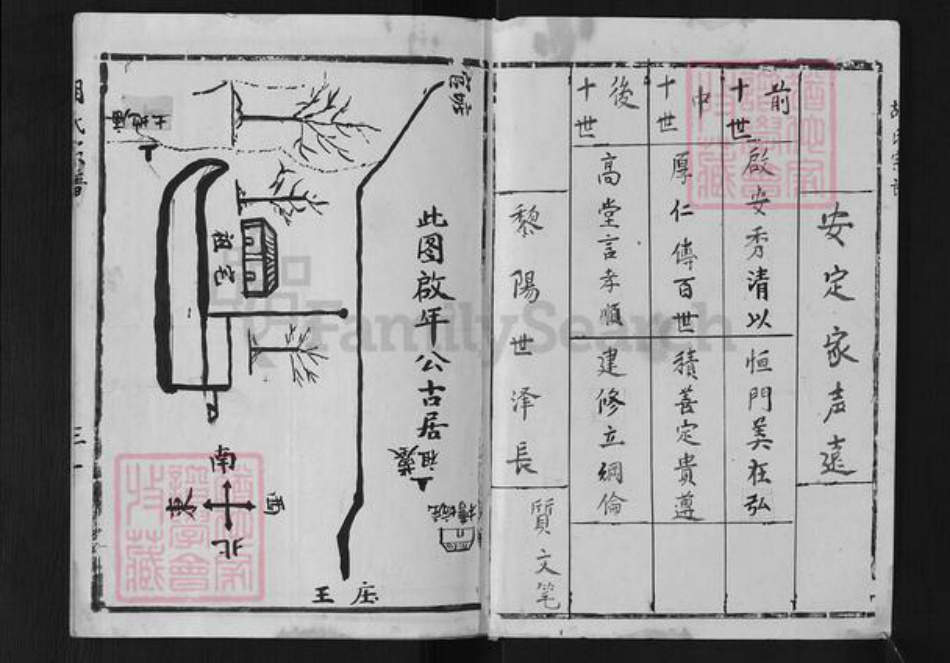 安定家声遠
前十世
啟安秀清以恒門美在弘
中十世
厚仁傳百世積善定貴遵
後十世
高堂言孝順建修立綱倫
黎陽世泽長
質文笔
此图啟年公古居
祖墓
祖宅
土地庙
南
東
西
北
王庄
FamilySearch